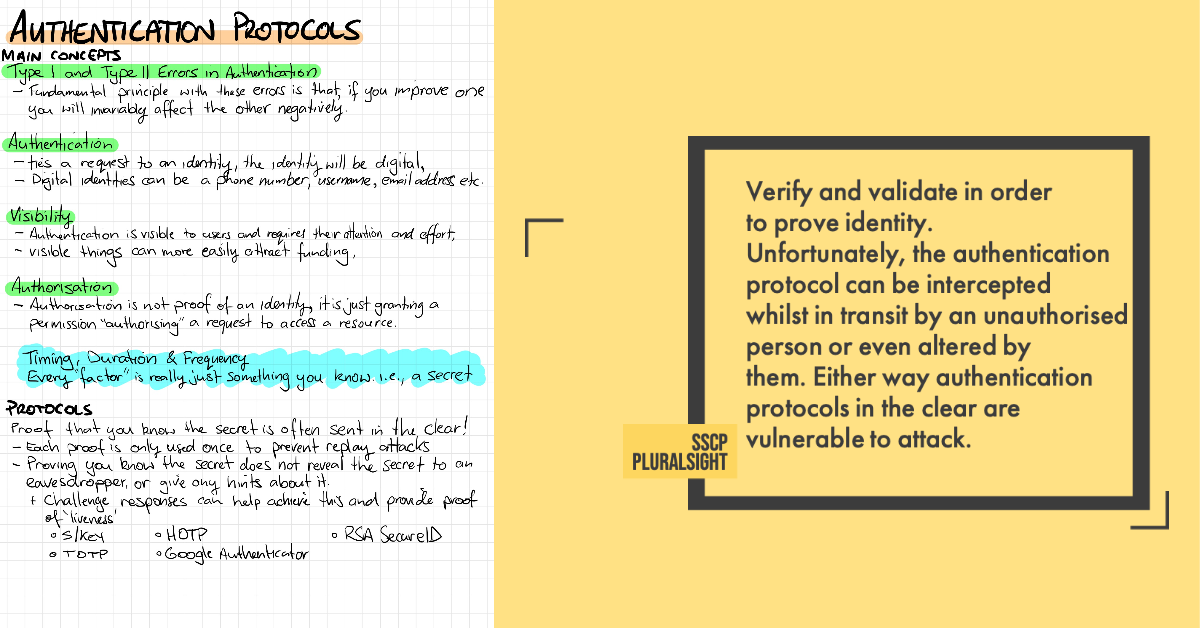 AUTHENTICATION PROTOCOLS
MAIN CONCEPTS
Type I and Type II Errors in Authentication
- Fundamental principle with these errors is that, if you improve one
you will invariably affect the other negatively.
Authentication
- ties a request to an identity, the identity will be digital,
- Digital identities can be a phone number, username, email address etc.
Visibility
- Authentication is visible to users and requires their attention and effort,
- visible things can more easily attract funding,
Authorisation
- Authorisation is not proof of an identity, it is just granting a
permission "authorising" a request to access a resource.
Timing, Duration & Frequency
Every "factor" is really just something you know. i.e., a secret
PROTOCOLS
Proof that you know the secret is often sent in the clear!
- Each proof is only used once to prevent replay attacks
- Proving you know the secret does not reveal the secret to an
eavesdropper, or give any hints about it.
+ Challenge responses can help achieve this and provide proof
of 'liveness'
◦ S/Key ◦ HOTP ◦ RSA SecureID
◦ TOTP ◦ Google Authenticator
Verify and validate in order
to prove identity.
Unfortunately, the authentication
protocol can be intercepted
whilst in transit by an unauthorised
person or even altered by
them. Either way authentication
protocols in the clear are
vulnerable to attack.
SSCP
PLURALSIGHT